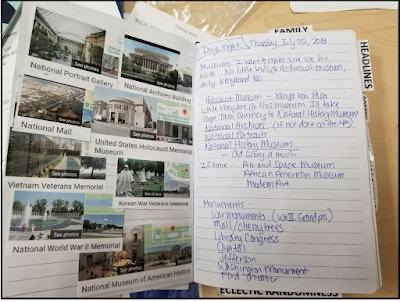 See photos
National Portrait Gallery
See photos
National Archives Building
See photos
National Mall
United States Holocaust Memorial
Museum
See photos
Vietnam Veterans Memorial
See photos
Korean War Veterans Memorial
See photos
National World War II Memorial
See photos
National Museum of American History
FAMILY
HEADLINES
ECLECTIC RANDOMNESS
Thursday, July 05, 2018
Museums I want to make sure we hit.
Note: No little kids @ Holocaust museum,
only
Holocaust Museum -
While they are @ this museum I'll take
to National History Museum
National Archives (if not done on the 4th)
National Portraits
National History Museum
- Old Glory a must
If time... Air and Space Museum
African American Museum
Modern Art
Monuments -
War monuments (WWII Grandpas)
Mall / cherry trees
Library Congress
Capitol
Jefferson
Washington Monument
Ford theater